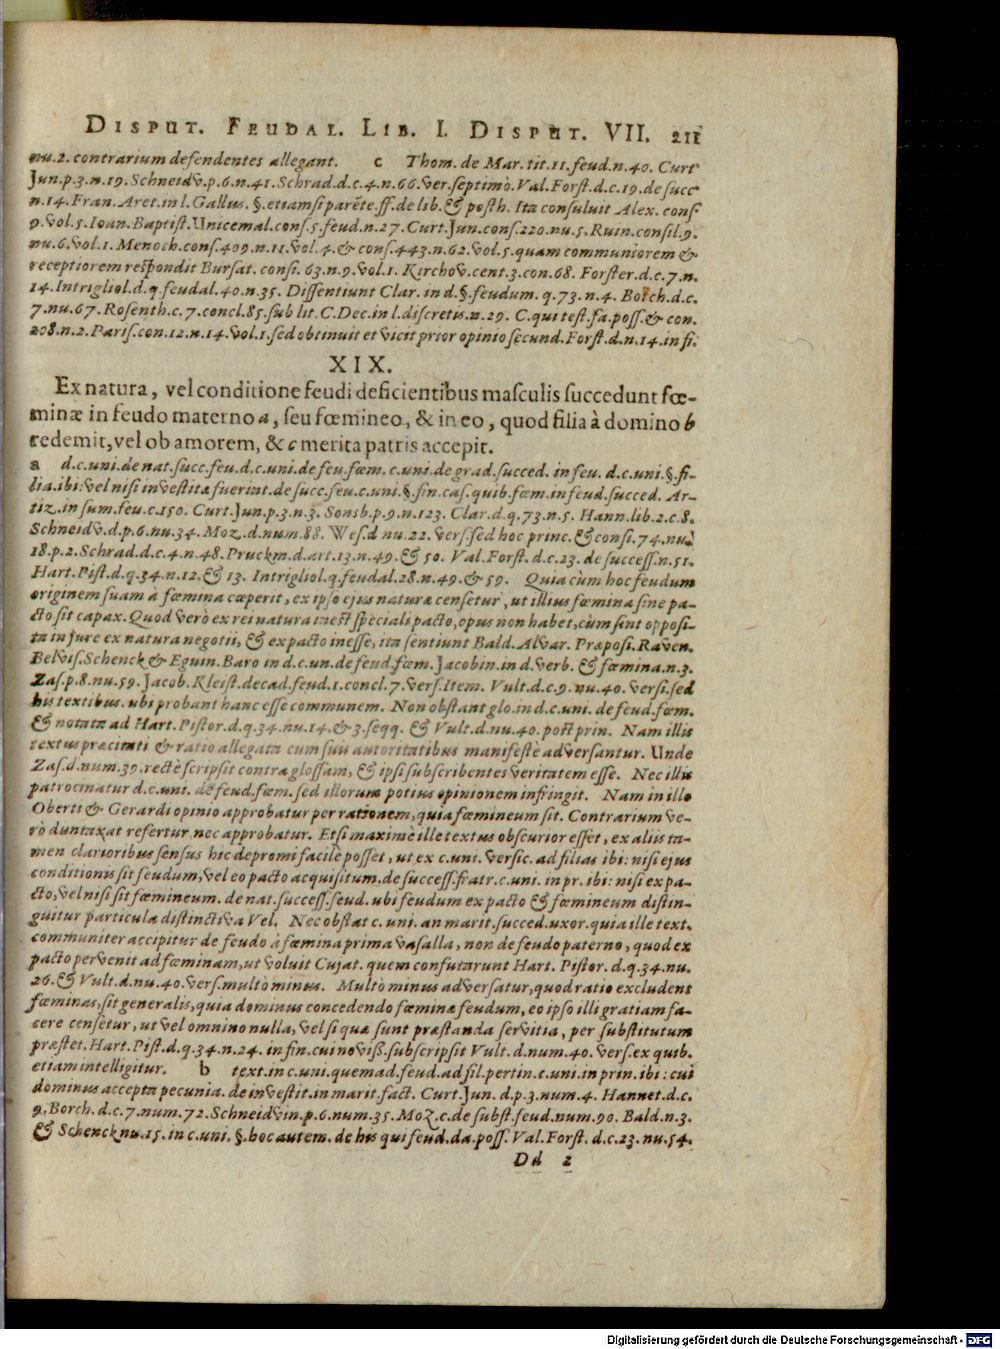 DISPUT. FEUDAL. LIB. I. DISPUT. VII. 211
nu.2. contrarium defendentes allegant. c Thom. de Mar. tit.11.feud.n.40. Curt
Jun.p.3.n.19.Schneidv.p.6.n.41.Schrad.d.c.4.n.66.ver.septimò.Val.Forst.d.c.19.de succ
n.14.Fran.Aret.in l.Gallus.§.etiamsi parēte.ff.de lib.& posth. Ita consuluit Alex. cons
9.vol.5.Ioan.Baptist.Unicemal.cons.5.feud.n.27.Curt.Jun.cons.220.nu.5.Ruin.consil.9.
nu.6.vol.1.Menoch.cons.409.n.11.vol.4.& cons.443.n.62.vol.5.quam communiorem &
receptiorem respondit Bursat.consi.63.n.9.vol.1. Kirchov.cent.3.con.68. Forster.d.c.7.n.
14.Intrigliol.d.q.feudal.40.n.35. Dissentiunt Clar. in d.§.feudum.q.73.n.4. Borch.d.c.
7.nu.67.Rosenth.c.7.concl.85.sub lit.C.Dec.in l.discretis.n.29. C.qui test.fa.poss.& con.
208.n.2.Paris.con.12.n.14.vol.1.sed obtinuit et vicit prior opinio secund.Forst.d.n.14.in fi.
XIX.
Ex natura, vel conditione feudi deficientibus masculis succedunt fœ-
minæ in feudo materno a, seu fœmineo, & in eo, quod filia à domino b
redemit, vel ob amorem, & c merita patris accepit.
a d.c.uni.de nat.succ.feu.d.c.uni.de feu.fœm.c.uni.de grad.succed. in feu. d.c.uni.§.fi-
lia.ibi: vel nisi investitæ fuerint.de succ.feu.c.uni.§.fin.cas.quib.fœm.in feud.succed. Ar-
tiz.in sum.feu.c.150. Curt.Jun.p.3.n.3. Sonsb.p.9.n.123. Clar.d.q.73.n.5. Hann.lib.2.c.8.
Schneidv.d.p.6.nu.34. Moz.d.num.88. Wes.d nu.22. vers.sed hoc princ.& consi.74.nu.
18.p.2.Schrad.d.c.4.n.48.Pruckm.d.art.13.n.49.& 50. Val.Forst.d.c.23. de success.n.51.
Hart.Pist.d.q.34.n.12.& 13. Intrigliol.q.feudal.28.n.49.& 59. Quia cùm hoc feudum
originem suam à fœmina cœperit, ex ipso ejus natura censetur, ut illius fœmina sine pa-
cto sit capax. Quod verò ex rei natura inest speciali pacto, opus non habet, cùm sint opposi-
ta in jure ex natura negotii, & ex pacto inesse, ita sentiunt Bald.Alvar. Præposi.Raven.
Belvis.Schenck & Eguin.Baro in d.c.un.de feud.fœm.Jacobin.in d.verb. & fœmina.n.3.
Zas.p.8.nu.59. Jacob. Kleist.decad.feud.1.concl.7.vers.Item. Vult.d.c.9.nu.40. versi.sed
his textibus.ubi probant hanc esse communem. Non obstant glo.in d.c.uni. de feud.fœm.
& notata ad Hart.Pistor.d.q.34.nu.14.& 3.seqq. & Vult.d.nu.40.post prin. Nam illis
textus præcitati & ratio allegata cum suis autoritatibus manifestè adversantur. Unde
Zas.d.num.39.rectè scripsit contra glossam, & ipsi subscribentes veritatem esse. Nec illis
patrocinatur d.c.uni. de feud.fœm.sed illorum potius opinionem infringit. Nam in illo
Oberti & Gerardi opinio approbatur per rationem, quia fœmineum sit. Contrarium ve-
rò duntaxat refertur nec approbatur. Etsi maximè ille textus obscurior esset, ex aliis ta-
men clarioribus sensus hic depromi facilè posset, ut ex c.uni. versic. ad filias ibi: nisi ejus
conditionis sit feudum, vel eo pacto acquisitum.de success.fratr.c.uni.in pr.ibi: nisi ex pa-
cto, vel nisi sit fœmineum. de nat.success.feud. ubi feudum ex pacto & fœmineum distin-
guitur particula distinctiva Vel. Nec obstat c.uni. an marit.succed.uxor.quia ille text.
communiter accipitur de feudo à fœmina prima vasalla, non de feudo paterno, quod ex
pacto pervenit ad fœminam, ut voluit Cujat. quem confutarunt Hart. Pistor. d.q.34.nu.
26.& Vult.d.nu.40.vers.multò minus. Multò minus adversatur, quod ratio excludens
fœminas, sit generalis, quia dominus concedendo fœminæ feudum, eo ipso illi gratiam fa-
cere censetur, ut vel omnino nulla, vel si quæ sunt præstanda servitia, per substitutum
præstet. Hart.Pist.d.q.34.n.24. in fin.cui noviß.subscripsit Vult.d.num.40. vers.ex quib.
etiam intelligitur. b text.in c.uni.quemad.feud.ad fil.pertin.c.uni.in prin. ibi: cui
dominus accepta pecunia. de investit.in marit.fact. Curt.Jun. d.p.3.num.4. Hannet.d.c.
9.Borch.d.c.7.num.72.Schneidvin.p.6.num.35.Moz.c.de subst.feud.num.90. Bald.n.3.
& Schenck nu.15.in c.uni. §.hoc autem. de his qui feud.da.poss.Val.Forst.d.c.23.nu.54.
Dd 2
Digitalisierung gefördert durch die Deutsche Forschungsgemeinschaft - DFG